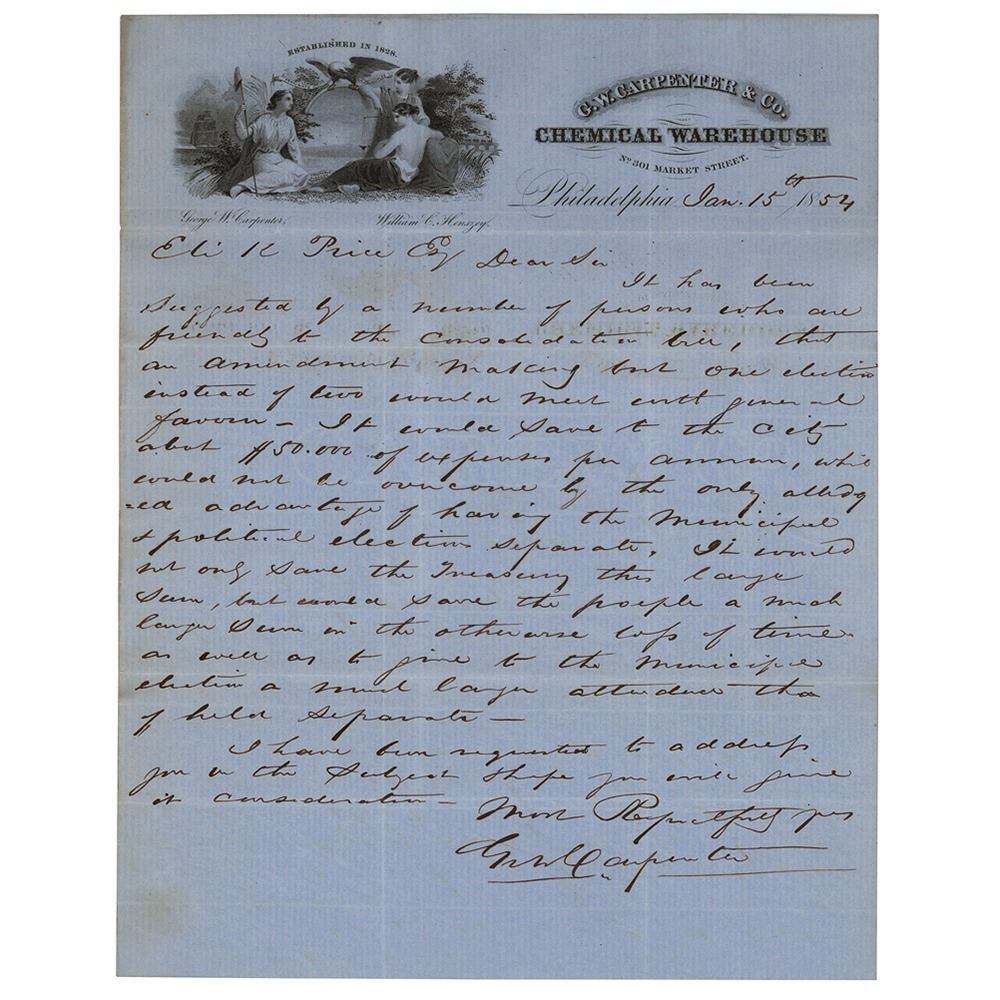 ESTABLISHED IN 1828.
G. W. CARPENTER & Co.
CHEMICAL WAREHOUSE
No 301 MARKET STREET.
Philadelphia Jan. 15th 1854
George W. Carpenter, William C. Henszey.
Eli K Price Esq Dear Sir
It has been
suggested by a number of persons who are
friendly to the Consolidation bill, that
an amendment making but one election
instead of two would meet with general
favour – It would save to the City
about $50.000 of expenses per annum, which
would not be overcome by the only alledg
=ed advantage of having the Municipal
& political elections separate. It would
not only save the Treasury this large
sum, but would save the people a much
larger sum in the otherwise loss of time
as well as to give to the Municipal
election a much larger attendance than
if held separate –
I have been requested to address
you on the subject & hope you will give
it consideration – Most Respectfully yrs
Geo W Carpenter